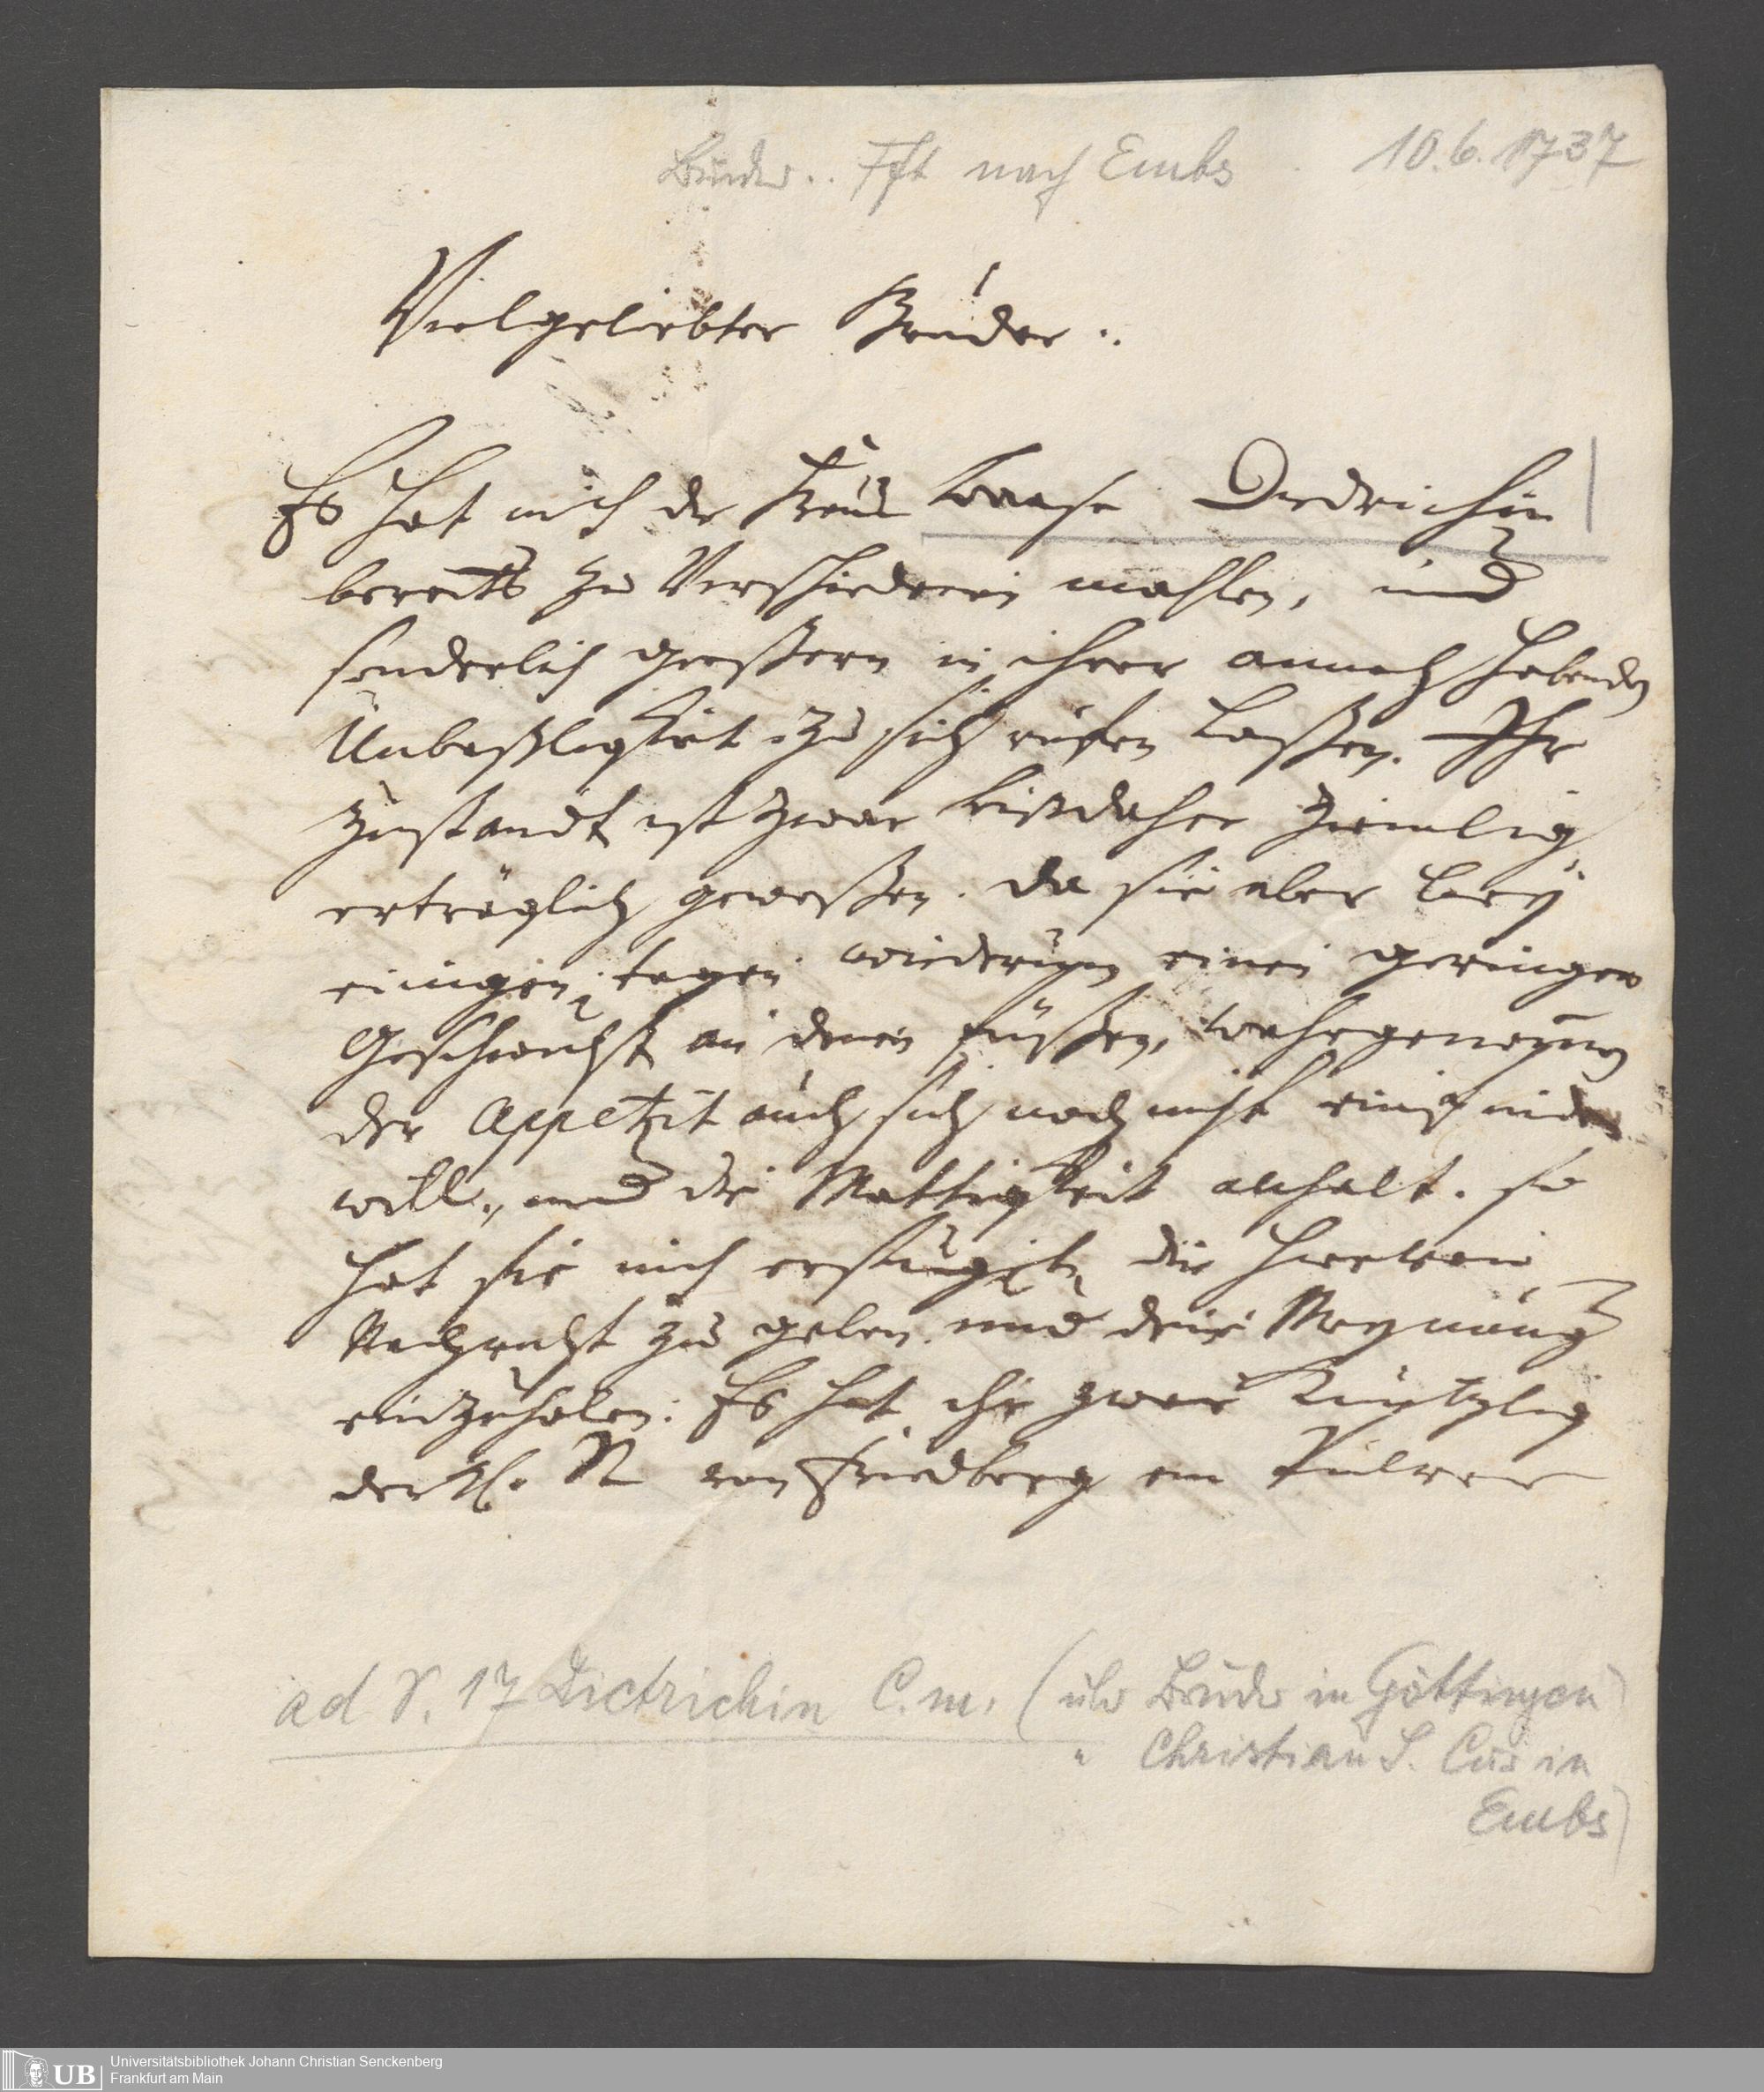 Bruder.. Fft nach Embs 10.6.1737
Vielgeliebter Bruder.
Es hat mich die Frau Baase Dedrichin
bereits zu verschiedenen mahlen, und
sonderlich gestern in ihrer annoch habenden
Unbaßligkeit zu sich rufen laßen. Ihr
Zustandt ist zwar bißdaher ziemlig
erträglich geweßen. da sie aber bey
einigen tagen wiederum einen geringen
Geschwulst an denen füßen, wahrgenommen
der Appetit auch sich noch nicht einfinden
will, und die Mattigkeit anhalt. so
hat sie mich ersucht, dir hiervon
Nachricht zu geben und deine Meynung
einzuholen. Es hat ihr zwar
der H. N von Friedberg ein Pulver
ad S. 17 Dietrichin C.m. (ihr Bruder in Göttingen)
" Christian S. Cur in
Embs)
UB Universitätsbibliothek Johann Christian Senckenberg
Frankfurt am Main